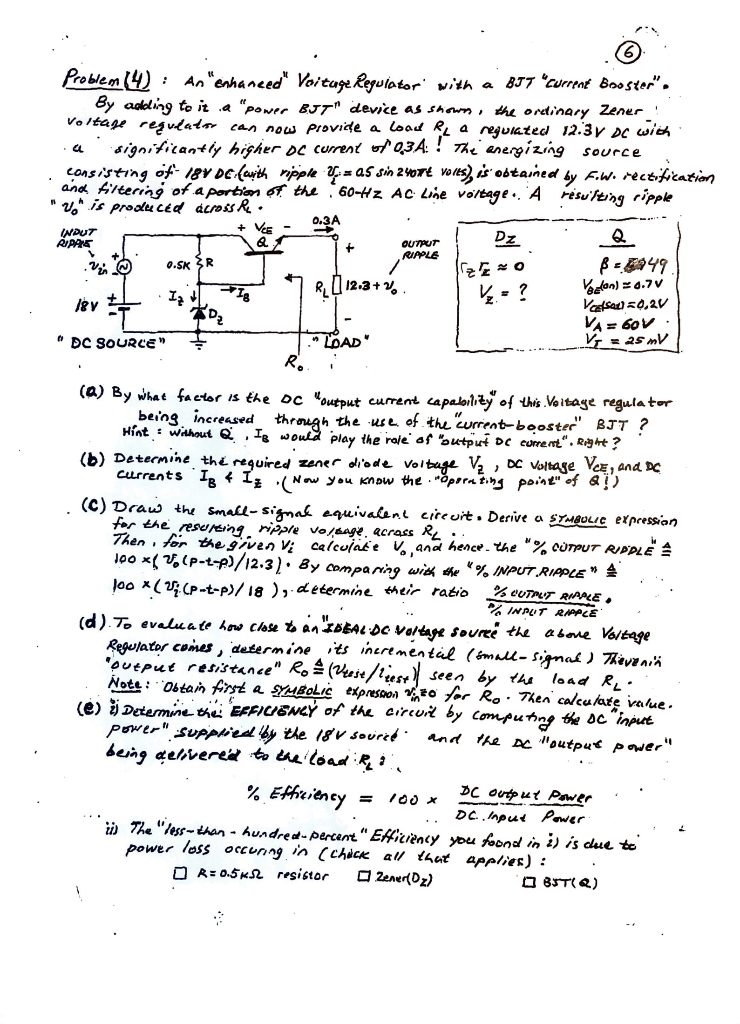 6
Problem (4) : An "enhanced" Voltage Regulator with a BJT "Current Booster".
By adding to it a "power BJT" device as shown, the ordinary Zener
voltage regulator can now provide a load RL a regulated 12.3V DC with
a significantly higher DC current of 0.3A! The energizing source
consisting of 18V DC (with ripple Vi = 0.5 sin 240πt volts), is obtained by F.W. rectification
and filtering of a portion of the 60-Hz AC Line voltage. A resulting ripple
"vo" is produced across RL.
INPUT
RIPPLE
vin
18V
"DC SOURCE"
0.5K
R
IZ
DZ
IB
+ VCE -
Q
0.3A
OUTPUT
RIPPLE
+
RL
12.3 + vo
-
"LOAD"
Ro
DZ
rZ ≈ 0
VZ = ?
Q
β = 49
VBE(on) = 0.7V
VCE(sat) = 0.2V
VA = 60V
VT = 25 mV
(a) By what factor is the DC "output current capability" of this Voltage regulator
being increased through the use of the "current-booster" BJT ?
Hint : without Q, IB would play the role of "output DC current". Right ?
(b) Determine the required zener diode voltage VZ, DC Voltage VCE, and DC
currents IB & IZ. (Now you know the "operating point" of Q!)
(C) Draw the small-signal equivalent circuit. Derive a SYMBOLIC expression
for the resulting ripple voltage across RL.
Then, for the given Vi calculate Vo, and hence the "% OUTPUT RIPPLE" ≜
100 x (Vo(p-t-p)/12.3). By comparing with the "% INPUT RIPPLE" ≜
100 x (Vi(p-t-p)/18), determine their ratio % OUTPUT RIPPLE / % INPUT RIPPLE.
(d) To evaluate how close to an "IDEAL DC Voltage source" the above Voltage
Regulator comes, determine its incremental (small-signal) Thévenin
"output resistance" Ro ≜ (Vtest/itest)| seen by the load RL.
Note : Obtain first a SYMBOLIC expression vin=0 for Ro. Then calculate value.
(e) i) Determine the EFFICIENCY of the circuit by computing the DC "input
power" supplied by the 18V source and the DC "output power"
being delivered to the load RL :
% Efficiency = 100 x DC output Power / DC Input Power
ii) The "less-than-hundred-percent" Efficiency you found in i) is due to
power loss occuring in (check all that applies) :
☐ R = 0.5KΩ resistor ☐ Zener(DZ) ☐ BJT(Q)